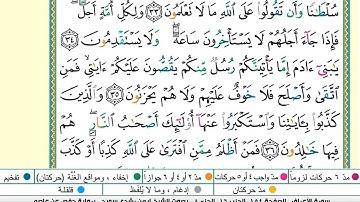 سُلْطَٰنًا وَأَن تَقُولُوا۟ عَلَى ٱللَّهِ مَا لَا تَعْلَمُونَ ٣٣ وَلِكُلِّ أُمَّةٍ أَجَلٌ
فَإِذَا جَآءَ أَجَلُهُمْ لَا يَسْتَأْخِرُونَ سَاعَةً وَلَا يَسْتَقْدِمُونَ ٣٤
يَٰبَنِىٓ ءَادَمَ إِمَّا يَأْتِيَنَّكُمْ رُسُلٌ مِّنكُمْ يَقُصُّونَ عَلَيْكُمْ ءَايَٰتِى فَمَنِ
ٱتَّقَىٰ وَأَصْلَحَ فَلَا خَوْفٌ عَلَيْهِمْ وَلَا هُمْ يَحْزَنُونَ ٣٥ وَٱلَّذِينَ
كَذَّبُوا۟ بِـَٔايَٰتِنَا وَٱسْتَكْبَرُوا۟ عَنْهَآ أُو۟لَٰٓئِكَ أَصْحَٰبُ ٱلنَّارِ هُمْ
فِيهَا خَٰلِدُونَ ٣٦ فَمَنْ أَظْلَمُ مِمَّنِ ٱفْتَرَىٰ عَلَى ٱللَّهِ كَذِبًا أَوْ كَذَّبَ
مدّ ٦ حركات لزوماً مدّ ٢ أو ٤ أو ٦ جوازاً إخفاء، ومواقع الغُنَّة (حركتان) تفخيم
مدّ واجب ٤ أو ٥ حركات مدّ حركتان إدغام، وما لا يُلفَظ قلقلة